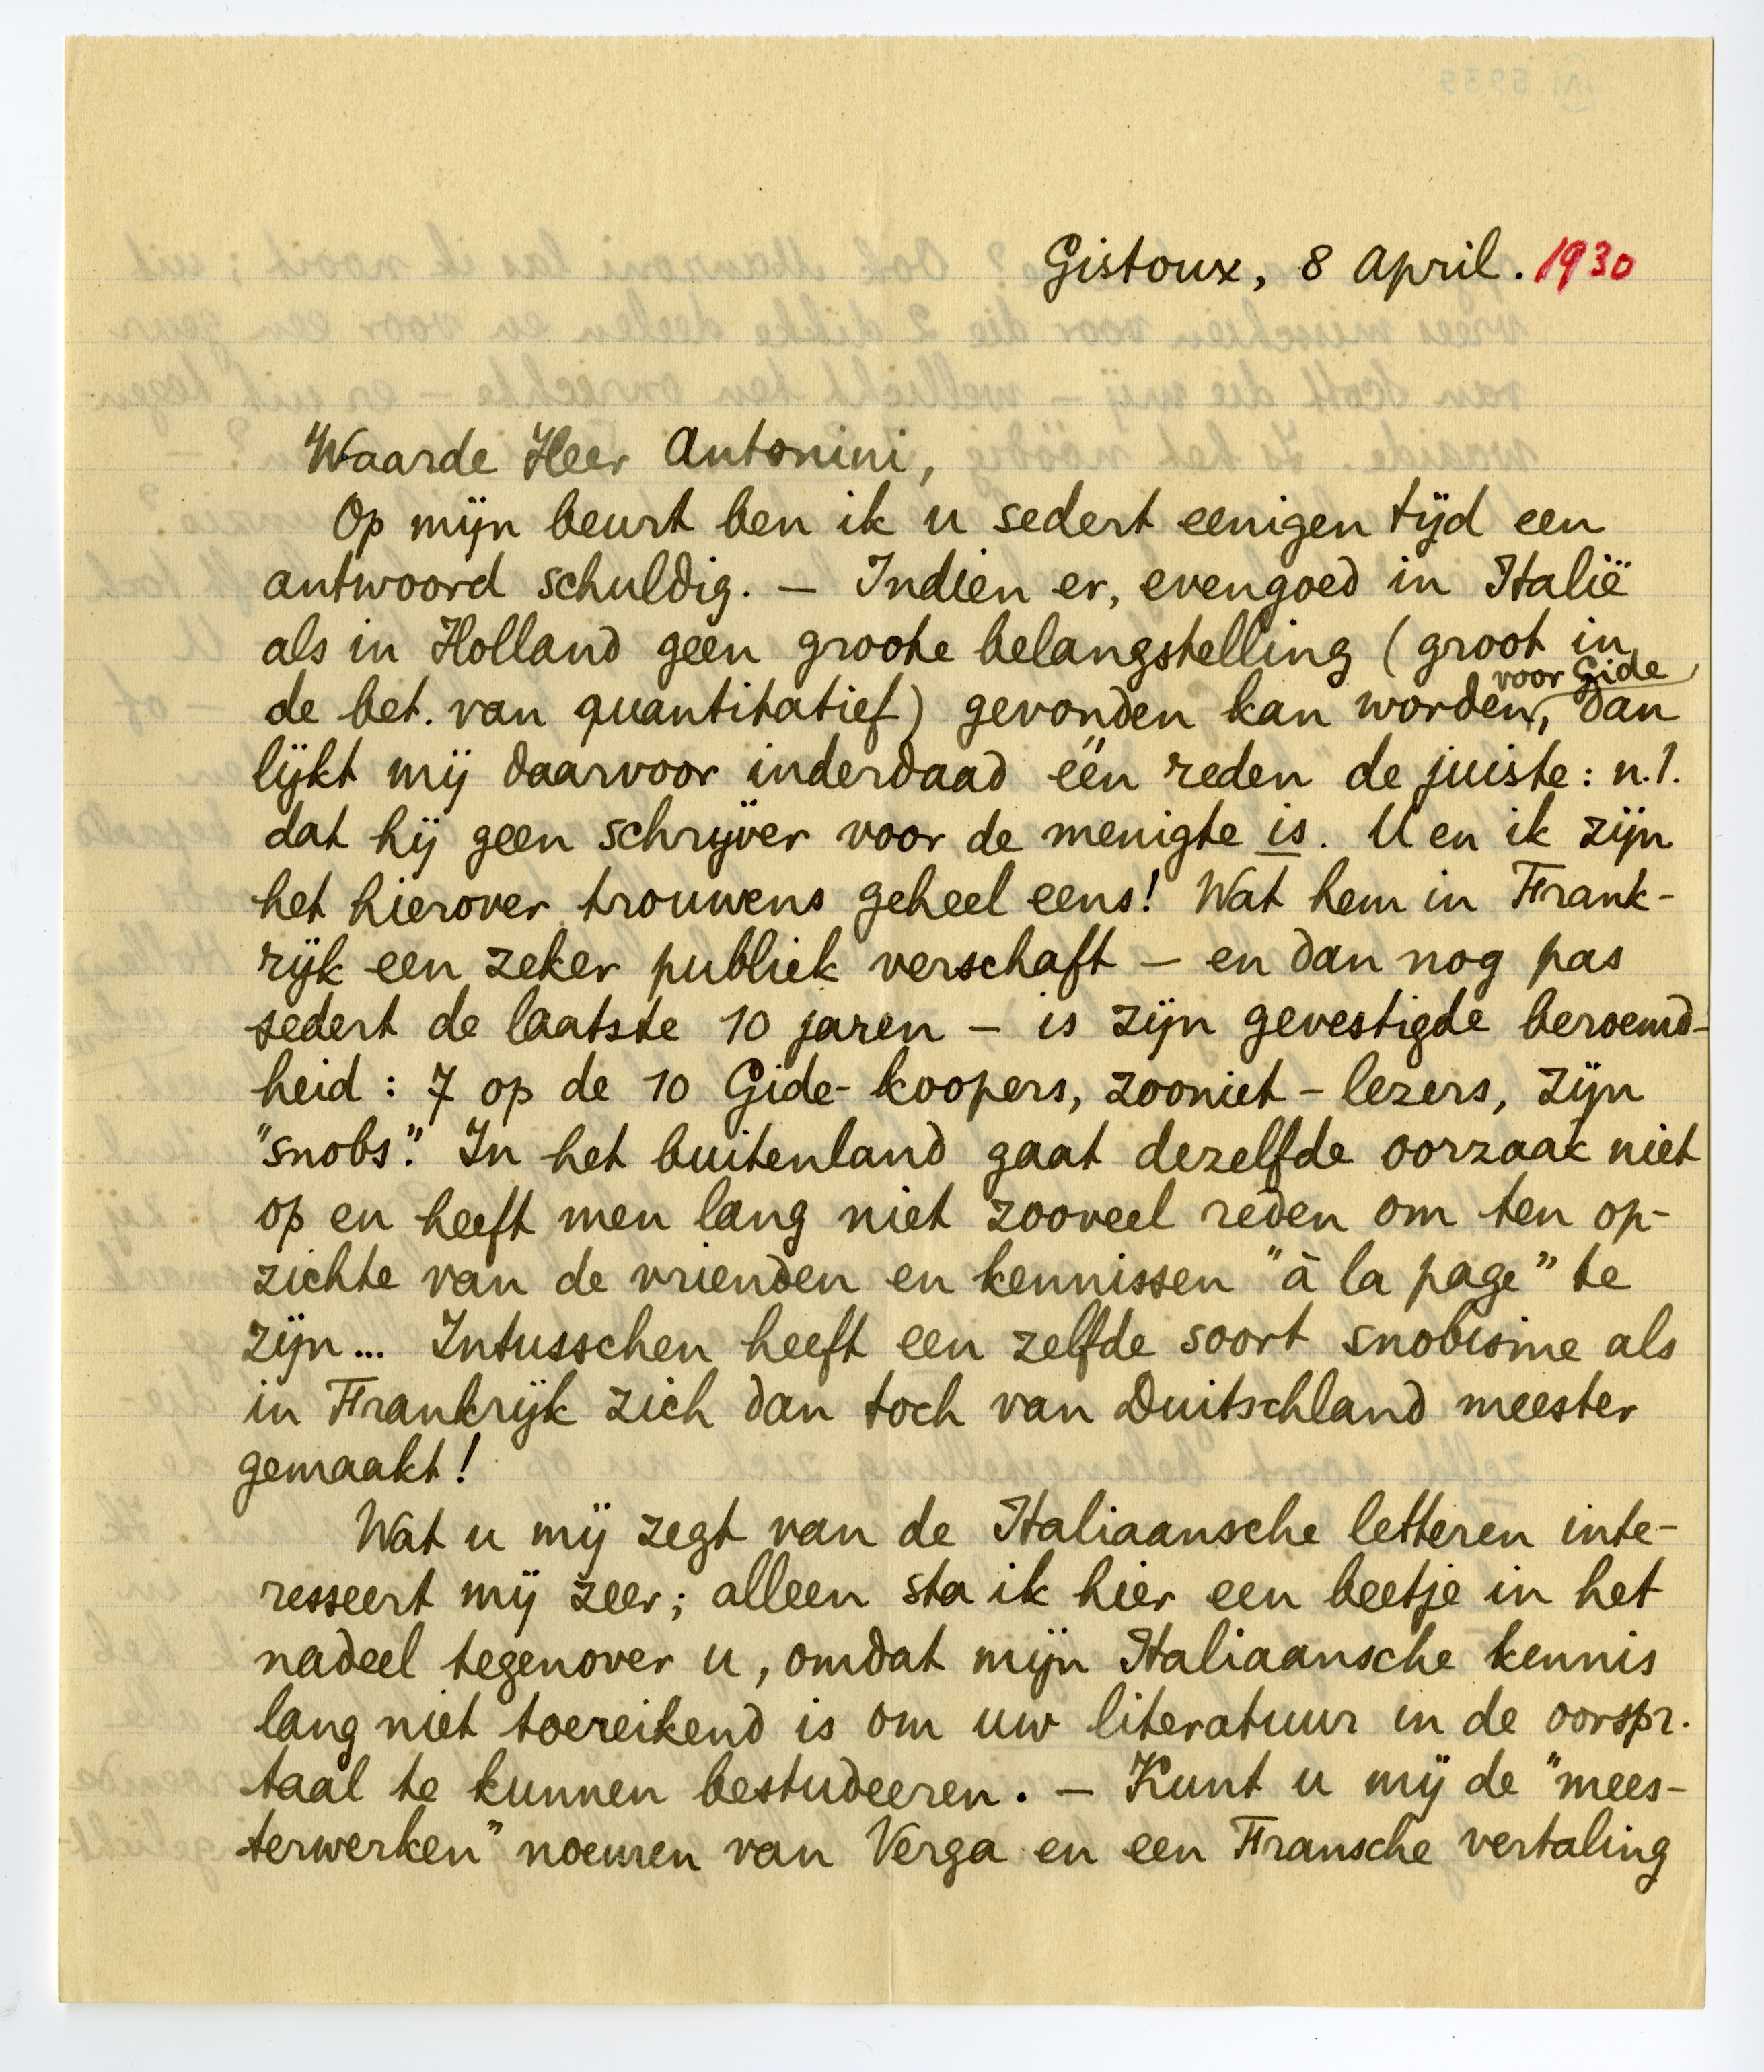 Gistoux, 8 April. 1930
Waarde Heer Antonini,
Op mijn beurt ben ik u sedert eenigen tijd een
antwoord schuldig. — Indien er, evengoed in Italië
als in Holland geen groote belangstelling (groot in
voor Gide
de bet. van quantitatief) gevonden kan worden, dan
lijkt mij daarvoor inderdaad één reden de juiste: n.l.
dat hij geen schrijver voor de menigte is. U en ik zijn
het hierover trouwens geheel eens! Wat hem in Frank-
rijk een zeker publiek verschaft — en dan nog pas
sedert de laatste 10 jaren — is zijn gevestigde beroemd-
heid: 7 op de 10 Gide-koopers, zooniet-lezers, zijn
"snobs". In het buitenland gaat dezelfde oorzaak niet
op en heeft men lang niet zooveel reden om ten op-
zichte van de vrienden en kennissen "à la page" te
zijn... Intusschen heeft een zelfde soort snobisme als
in Frankrijk zich dan toch van Duitschland meester
gemaakt!
Wat u mij zegt van de Italiaansche letteren inte-
resseert mij zeer; alleen sta ik hier een beetje in het
nadeel tegenover u, omdat mijn Italiaansche kennis
lang niet toereikend is om uw literatuur in de oorspr.
taal te kunnen bestudeeren. — Kunt u mij de "mees-
terwerken" noemen van Verga en een Fransche vertaling